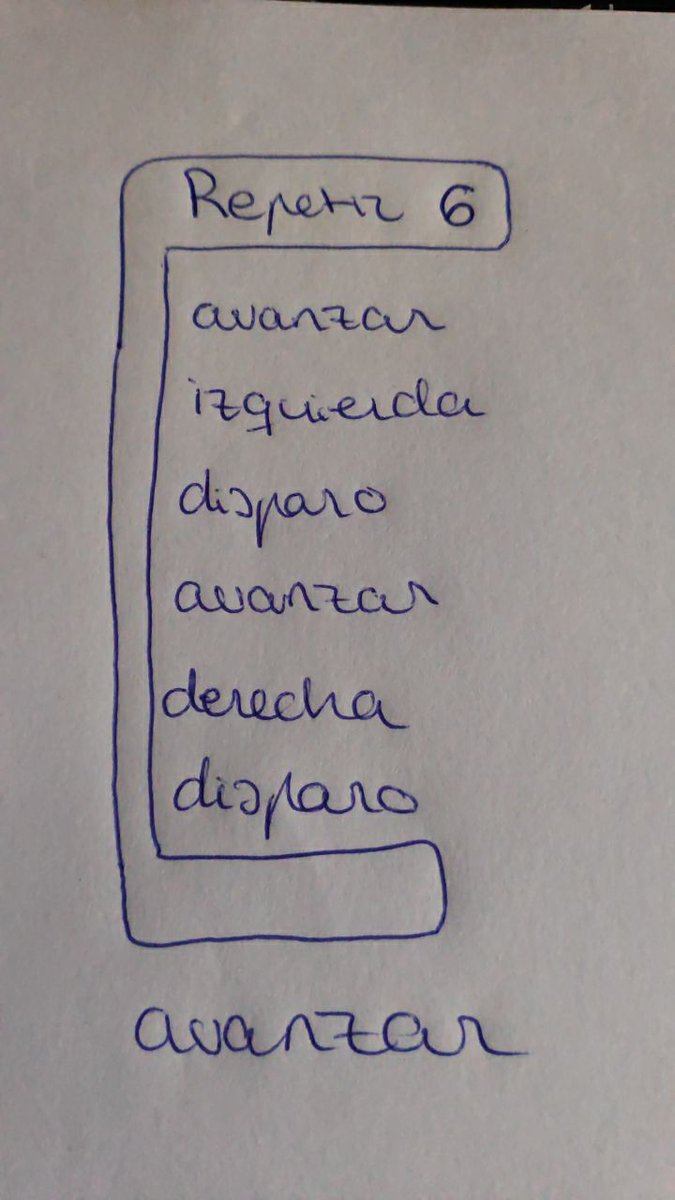 Repetir 6
avanzar
izquierda
disparo
avanzar
derecha
disparo
avanzar